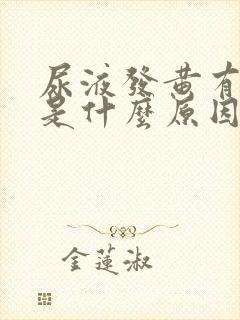 尿液發黃有
是什麼原因
金蓮淑